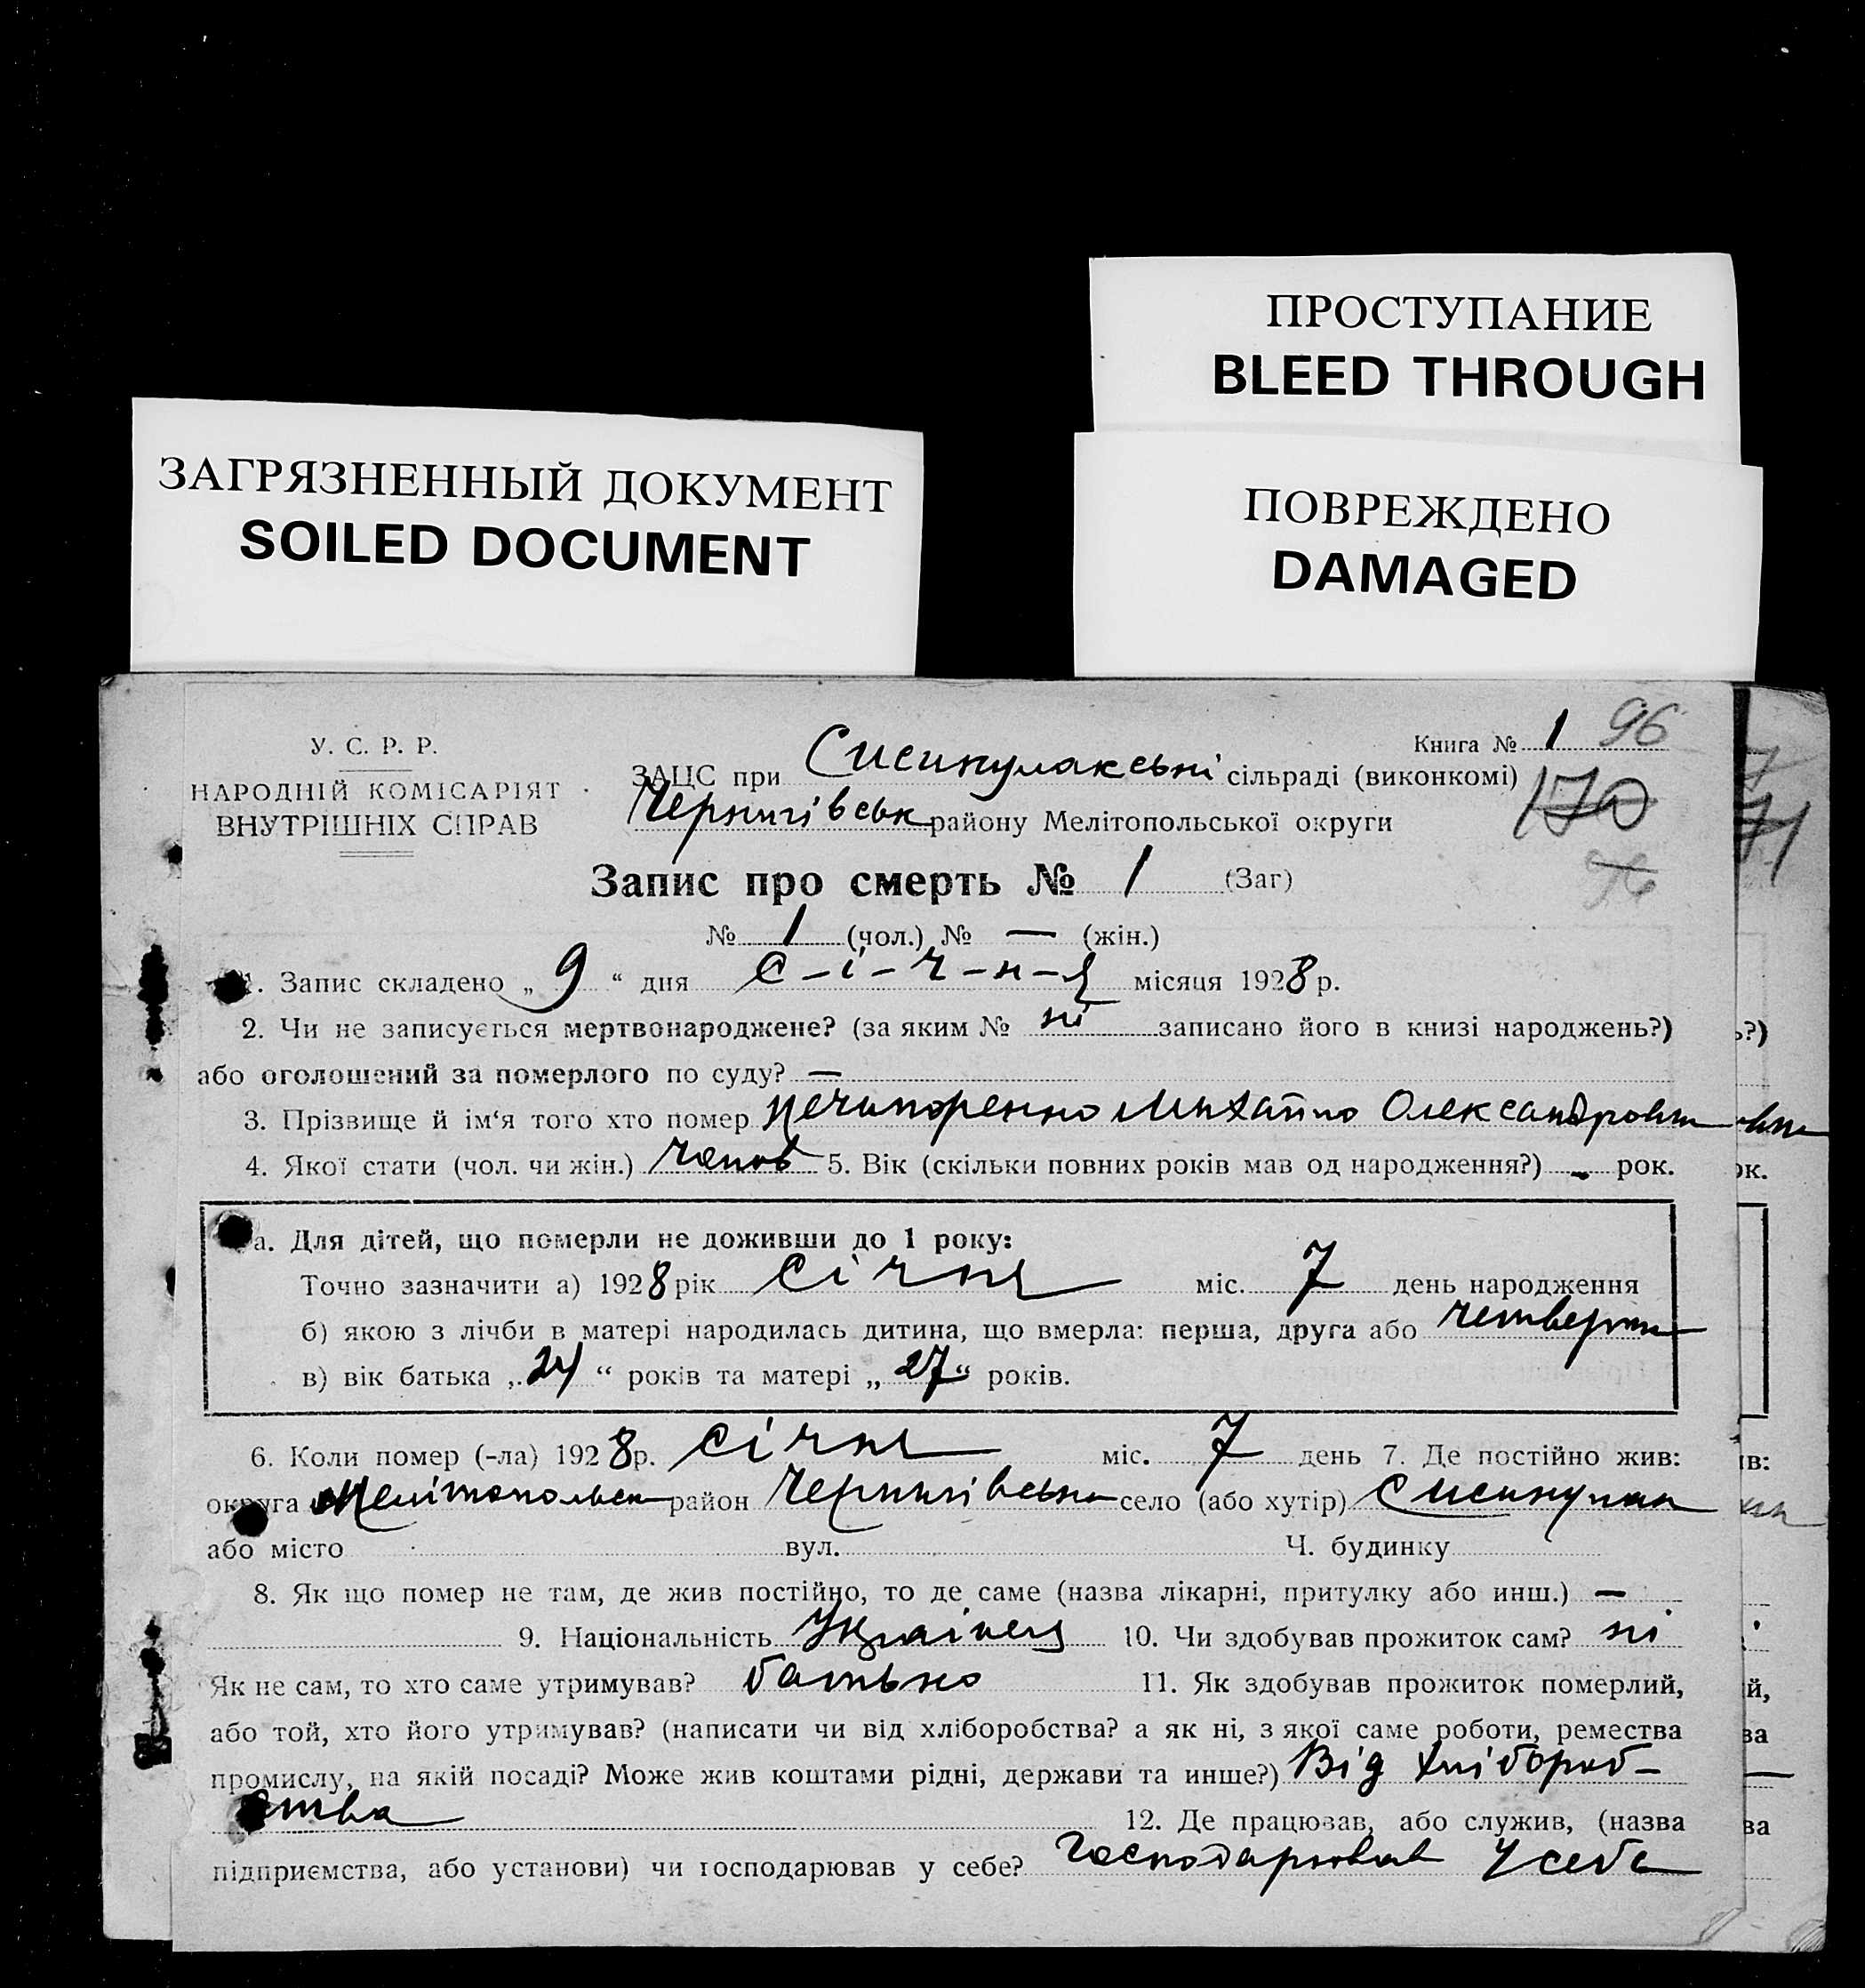 ПРОСТУПАНИЕ
BLEED THROUGH
ЗАГРЯЗНЕННЫЙ ДОКУМЕНТ
SOILED DOCUMENT
ПОВРЕЖДЕНО
DAMAGED
У. С. Р. Р.
НАРОДНІЙ КОМІСАРІЯТ
ВНУТРІШНІХ СПРАВ
Книга № 1 96
ЗАЦС при сільраді (виконкомі)
170
Чернигівськ району Мелітопольської округи
Запис про смерть № 1 (Заг)
96
№ 1 (чол.) № — (жін.)
1. Запис складено „ 9 “ дня С-і-ч-н-я місяця 1928 р.
2. Чи не записується мертвонароджене? (за яким № ні записано його в книзі народжень?)
або оголошений за померлого по суду? —
3. Прізвище й ім‘я того хто помер Нечипоренко Михайло Олександрович
4. Якої стати (чол. чи жін.) чолов 5. Вік (скільки повних років мав од народження?) - рок.
а. Для дітей, що померли не доживши до 1 року:
Точно зазначити а) 1928 рік Січня міс. 7 день народження
б) якою з лічби в матері народилась дитина, що вмерла: перша, друга або четверта
в) вік батька „ 24 “ років та матері „ 27 “ років.
6. Коли помер (-ла) 1928 р. Січня міс. 7 день 7. Де постійно жив:
округа Мелітопольськ район Чернигівськ село (або хутір)
або місто вул. Ч. будинку
8. Як що помер не там, де жив постійно, то де саме (назва лікарні, притулку або инш.) —
9. Національність Українец 10. Чи здобував прожиток сам? ні
Як не сам, то хто саме утримував? батько 11. Як здобував прожиток померлий,
або той, хто його утримував? (написати чи від хліборобства? а як ні, з якої саме роботи, ремества
промислу, на якій посаді? Може жив коштами рідні, держави та инше?) Від хлібороб-
ства 12. Де працював, або служив, (назва
підприємства, або установи) чи господарював у себе? Господарював у себе